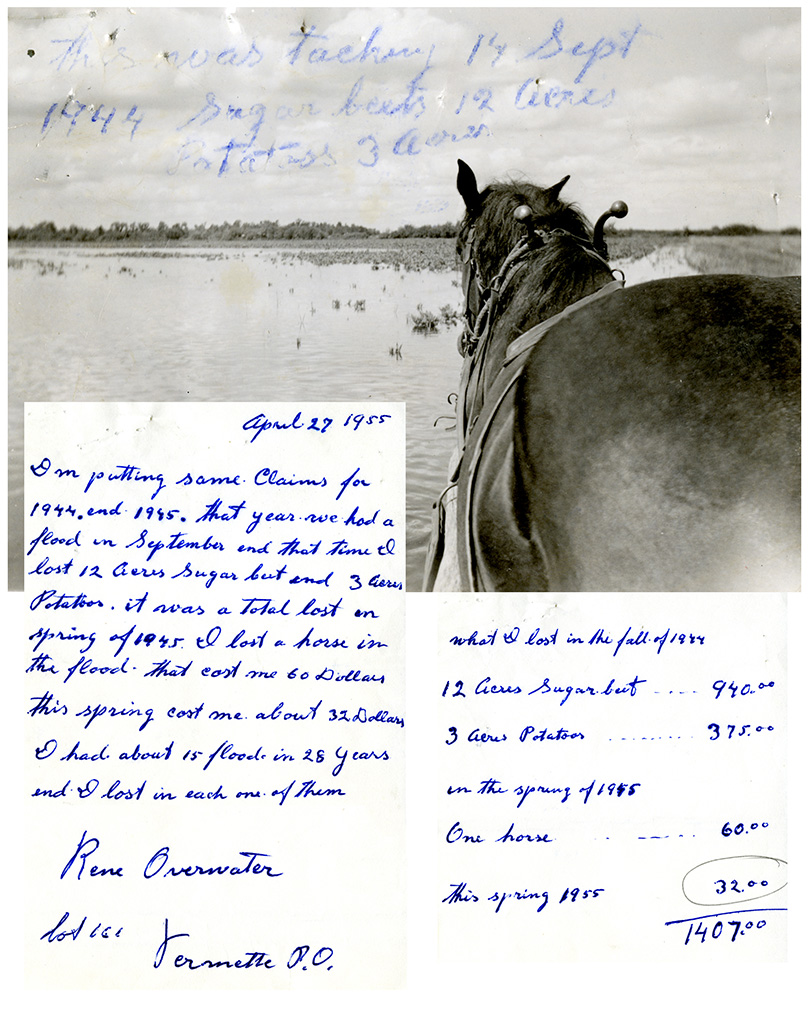 this was tacken 14 Sept
1944 Sugar beets 12 Acres
Potatoss 3 Acres
April 27 1955
I'm putting same Claims for
1944. end 1945. that year we had a
flood in September end that time I
lost 12 Acres Sugar beet end 3 Acres
Potatoos. it was a total lost in
spring of 1945. I lost a horse in
the flood. that cost me 60 Dollars
this spring cost me about 32 Dollars
I had about 15 flood in 28 Years
end I lost in each one of them
Rene Overwater
lot 161
Vermette P.O.
what I lost in the fall of 1944
12 Acres Sugar beet .... 940.00
3 Acres Potatoos ......... 375.00
in the spring of 1945
One horse .. ..... 60.00
this spring 1955 32.00
1407.00